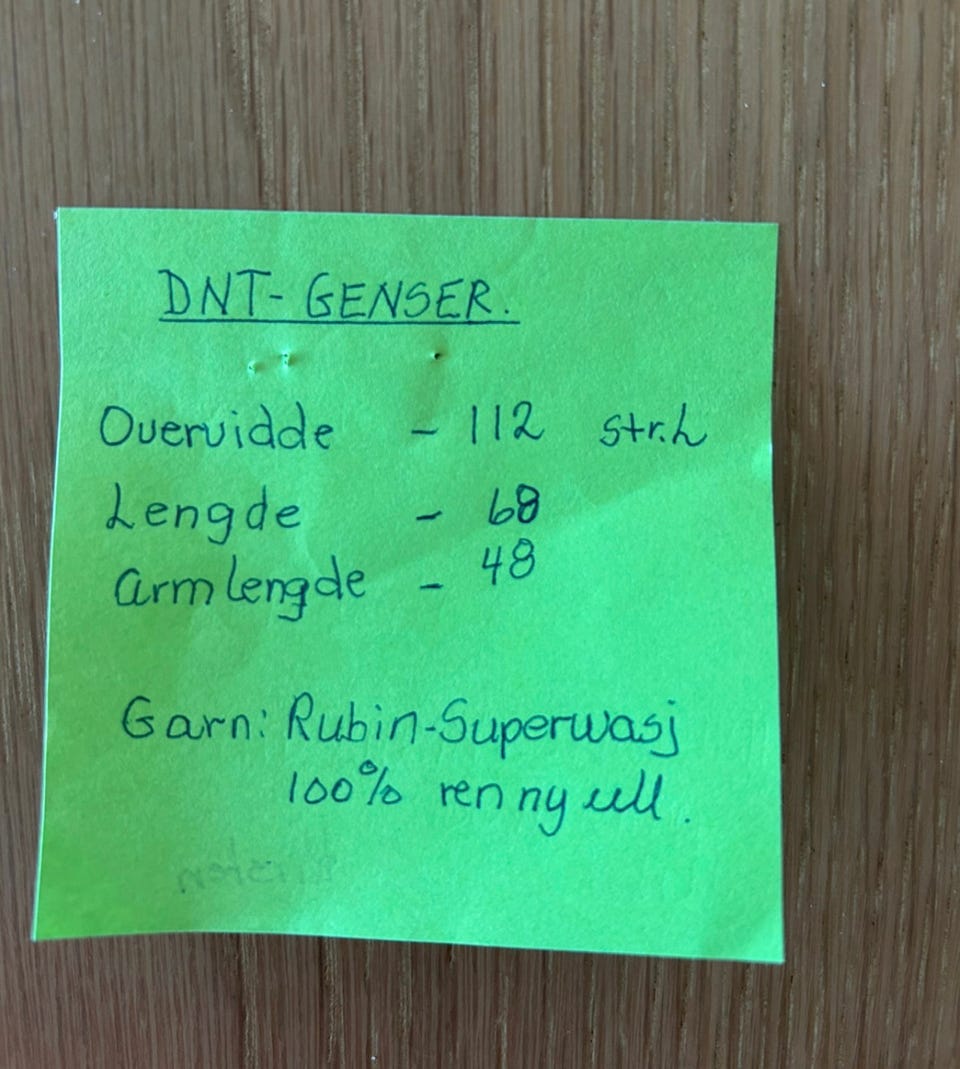 DNT- GENSER.
Overvidde - 112 str. L
Lengde - 68
Armlengde - 48
Garn: Rubin-Superwasj
100% ren ny ull.